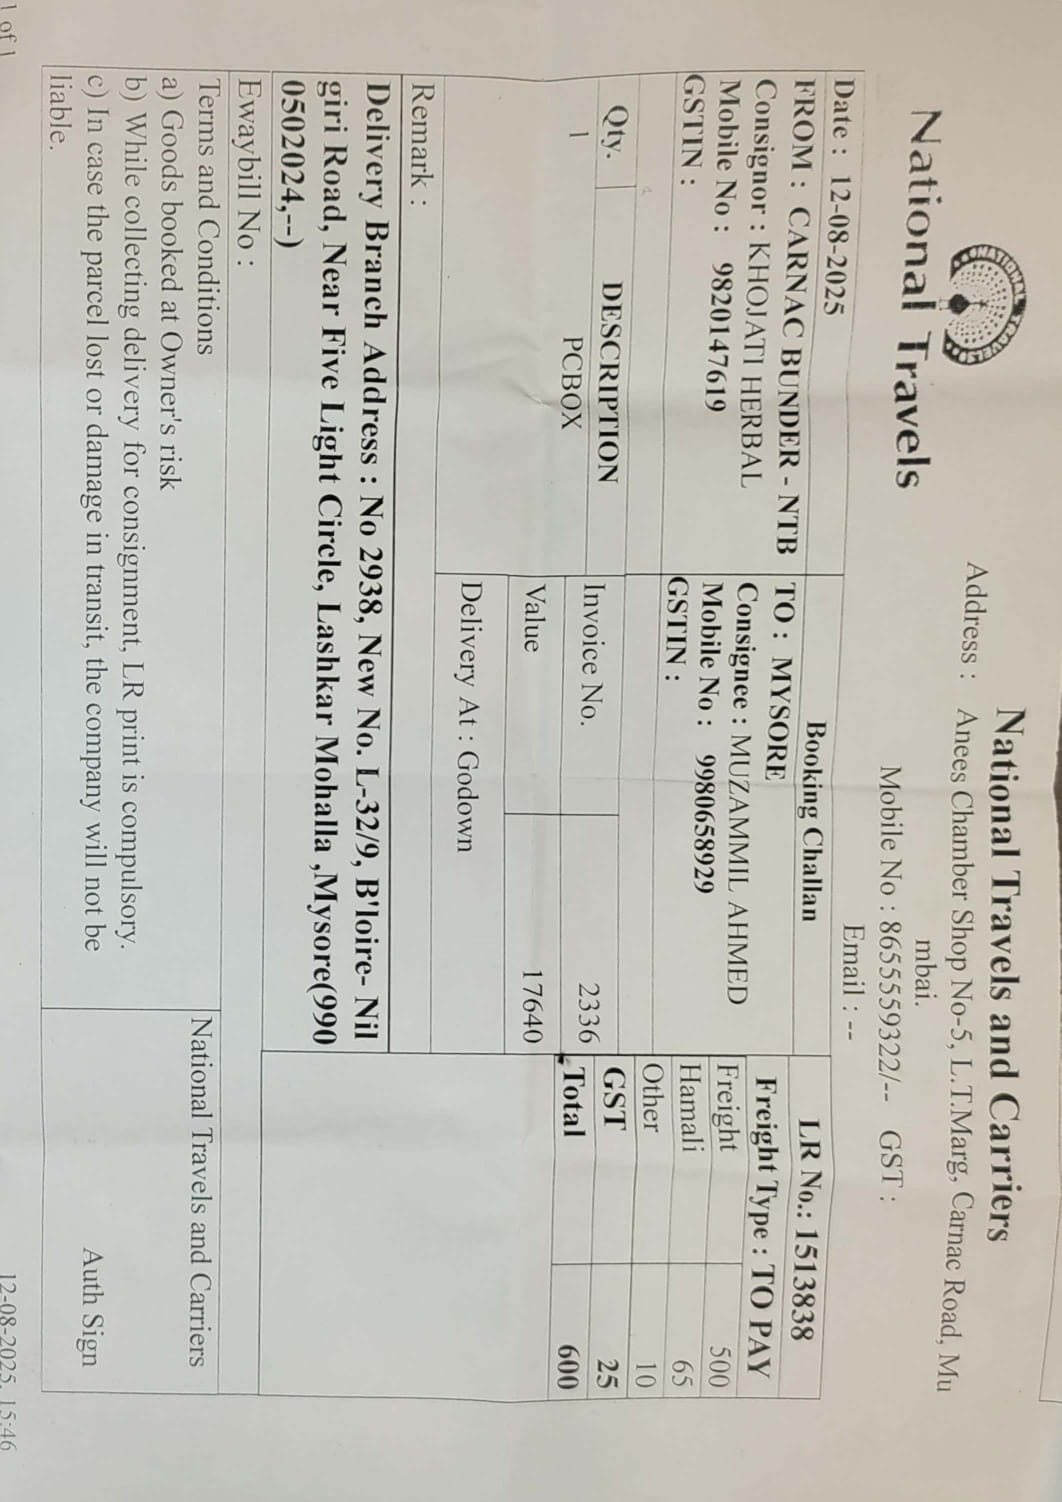 NATIONAL TRAVELS
National Travels
National Travels and Carriers
Address : Anees Chamber Shop No-5, L.T.Marg, Carnac Road, Mu
mbai.
Mobile No : 8655559322/-- GST :
Email : --
Date : 12-08-2025
Booking Challan
LR No.: 1513838
FROM : CARNAC BUNDER - NTB
Consignor : KHOJATI HERBAL
Mobile No : 9820147619
GSTIN :
TO : MYSORE
Consignee : MUZAMMIL AHMED
Mobile No : 9980658929
GSTIN :
Freight Type : TO PAY
Freight 500
Hamali 65
Other 10
GST 25
Total 600
Qty. DESCRIPTION
1 PCBOX
Invoice No. 2336
Value 17640
Delivery At : Godown
Remark :
Delivery Branch Address : No 2938, New No. L-32/9, B'loire- Nil
giri Road, Near Five Light Circle, Lashkar Mohalla ,Mysore(990
0502024,--)
Ewaybill No :
Terms and Conditions
a) Goods booked at Owner's risk
b) While collecting delivery for consignment, LR print is compulsory.
c) In case the parcel lost or damage in transit, the company will not be
liable.
National Travels and Carriers
Auth Sign
1 of 1
12-08-2025, 15:46